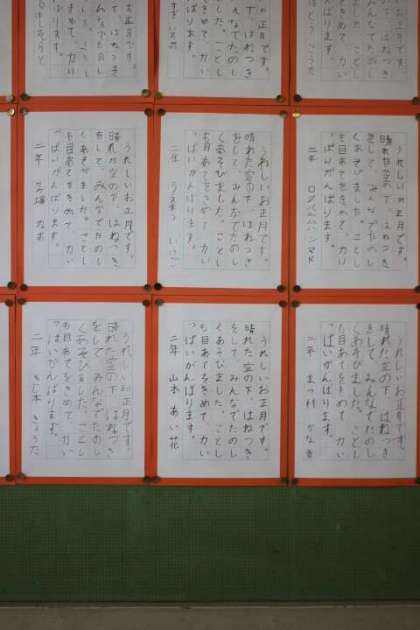 お正月です。
下、はねつき
んなでたのし
した。ことし
きめて、力い
ばります。
お正月です。
下、はねつき
なでたのし
ことし
きめて、力い
ばります。
正月です。
はねつき
でたのし
ことし
めて、力い
ります。
うれしいお正月です。
晴れた空の下、はねつき
をして、みんなでたのし
くあそびました。ことし
も目あてをきめて、力い
っぱいがんばります。
二年
うれしいお正月です。
晴れた空の下、はねつき
をして、みんなでたのし
くあそびました。ことし
も目あてをきめて、力い
っぱいがんばります。
二年
うれしいお正月です。
晴れた空の下、はねつき
をして、みんなでたのし
くあそびました。ことし
も目あてをきめて、力い
っぱいがんばります。
二年
うれしいお正月です。
晴れた空の下、はねつき
をして、みんなでたのし
くあそびました。ことし
も目あてをきめて、力い
っぱいがんばります。
二年 まつ村
うれしいお正月です。
晴れた空の下、はねつき
をして、みんなでたのし
くあそびました。ことし
も目あてをきめて、力い
っぱいがんばります。
二年 山本 あい花
うれしいお正月です。
晴れた空の下、はねつき
をして、みんなでたのし
くあそびました。ことし
も目あてをきめて、力い
っぱいがんばります。
二年